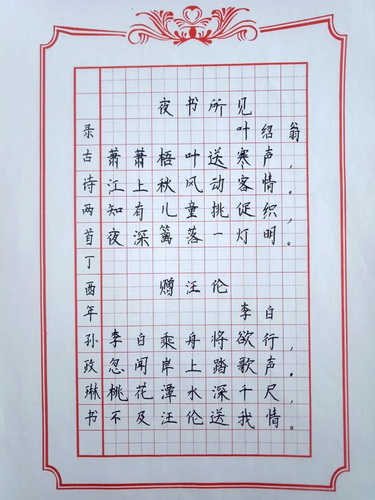 夜书所见
叶绍翁
萧萧梧叶送寒声，
江上秋风动客情。
知有儿童挑促织，
夜深篱落一灯明。
赠汪伦
李白
李白乘舟将欲行，
忽闻岸上踏歌声。
桃花潭水深千尺，
不及汪伦送我情。
录古诗两首丁酉年孙政琳书